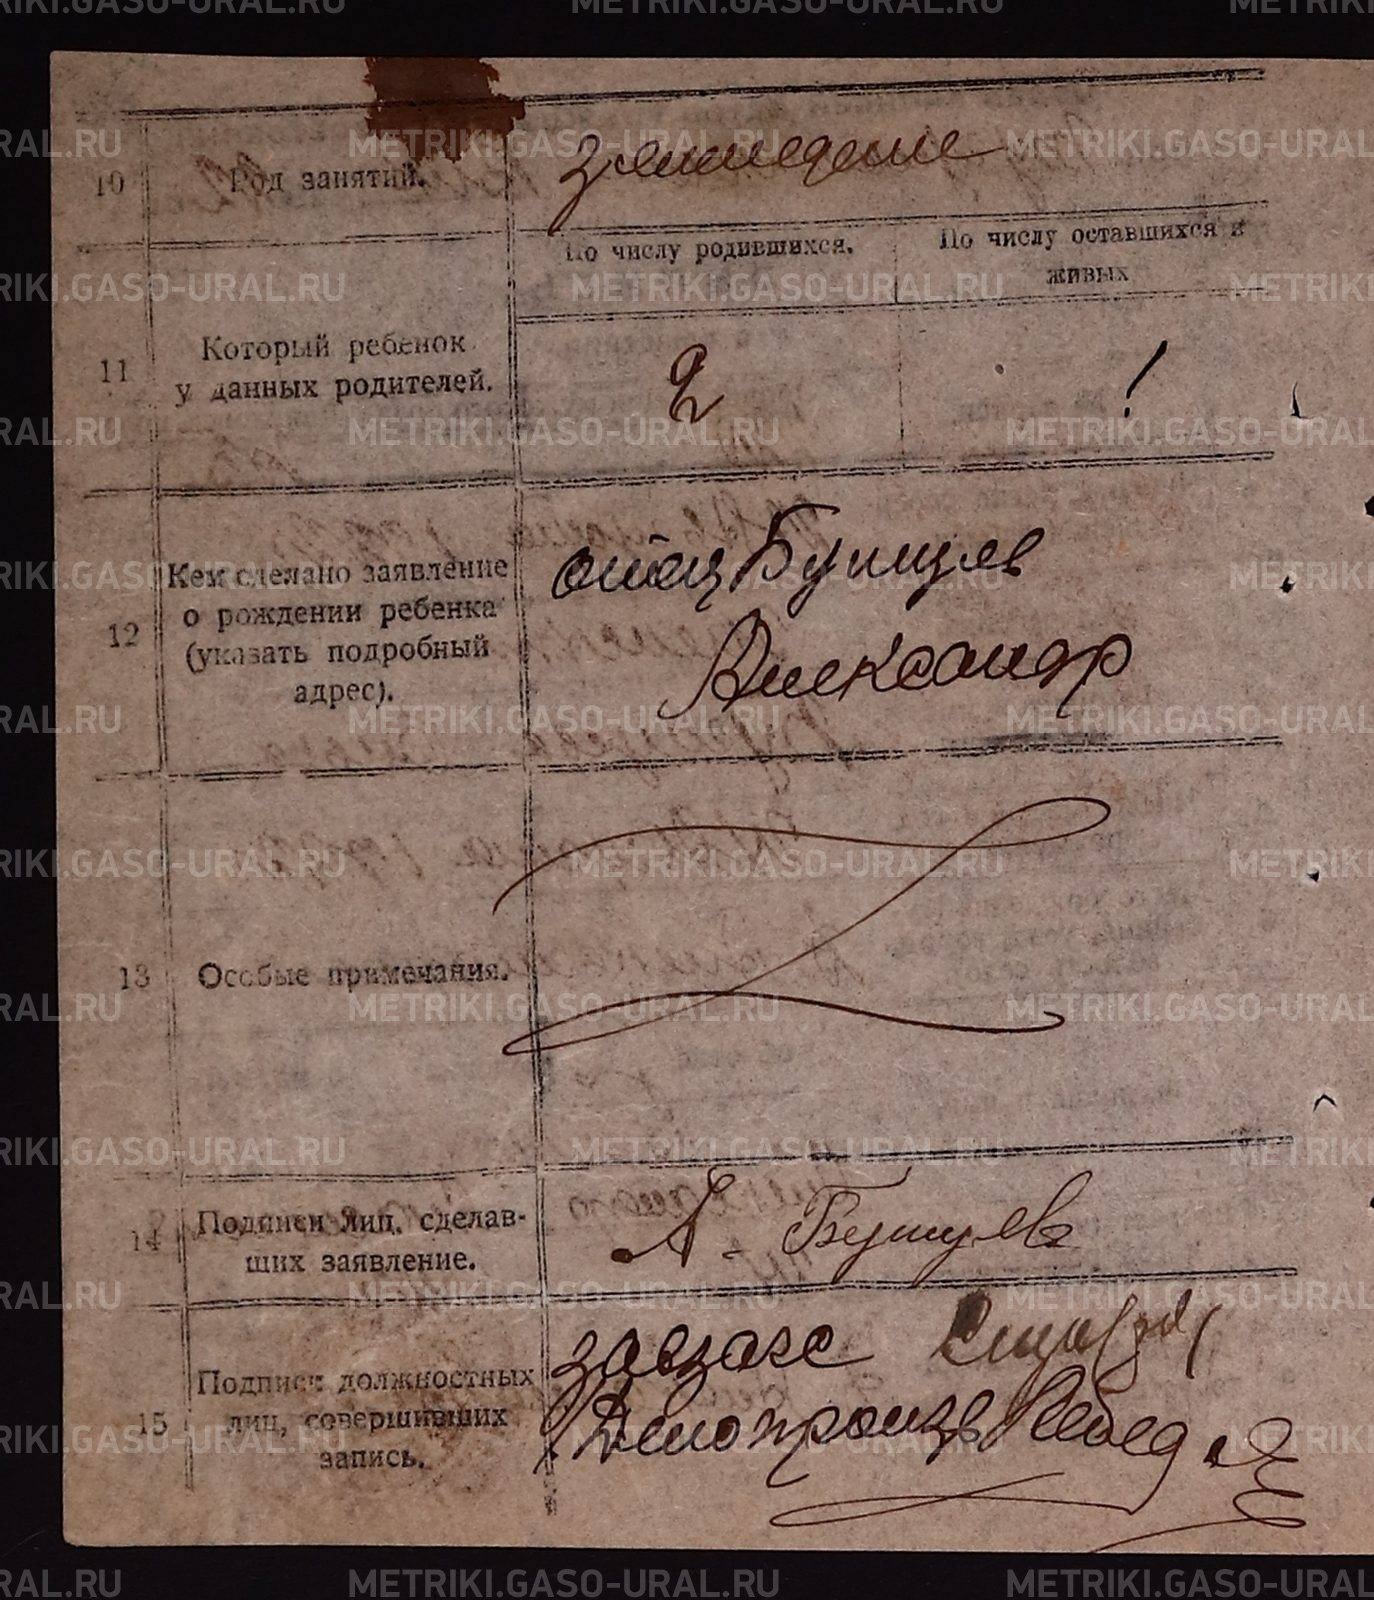 10 Род занятий. земледелие
По числу родившихся. По числу оставшихся в
живых
11 Который ребенок
у данных родителей.
2 1
12 Кем сделано заявление
о рождении ребенка
(указать подробный
адрес).
отец Бушуев
Александр
13 Особые примечания.
14 Подписи лиц, сделав-
ших заявление.
А. Бушуев
15 Подписи должностных
лиц, совершивших
запись.
завзагс
Делопроизв
METRIKI.GASO-URAL.RU